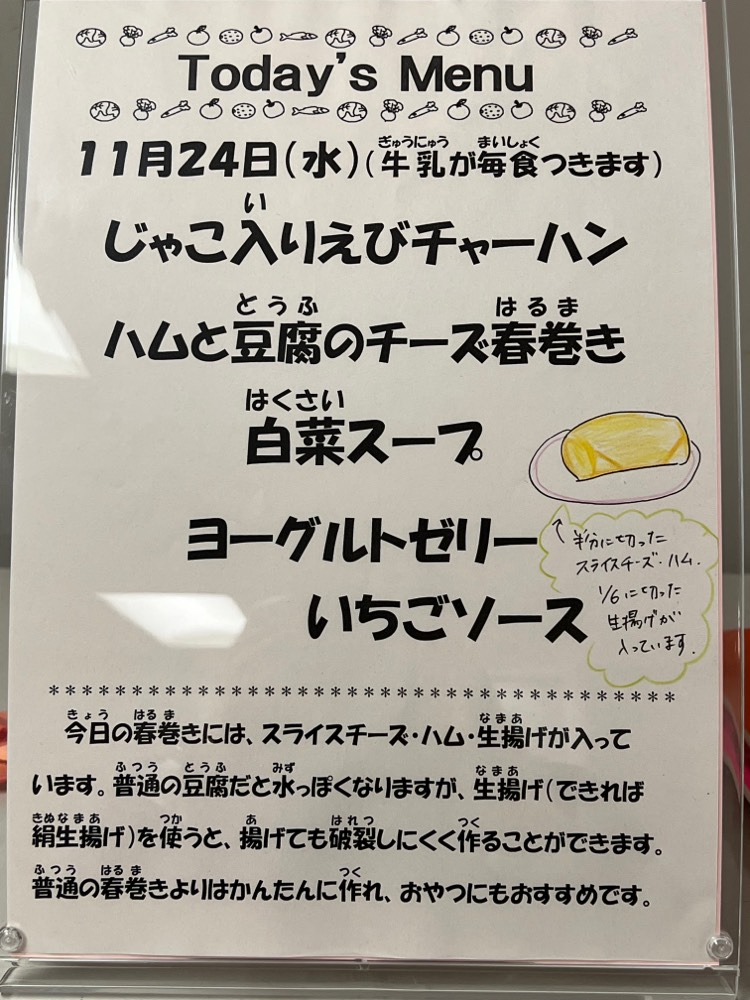 Today's Menu
11月24日(水)(牛乳が毎食つきます)
じゃこ入りえびチャーハン
ハムと豆腐のチーズ春巻き
白菜スープ
ヨーグルトゼリー
いちごソース
半分に切った
スライスチーズ・ハム.
1/6に切った
生揚げが
入っています.
*******************************************
今日の春巻きには、スライスチーズ・ハム・生揚げが入って
います。普通の豆腐だと水っぽくなりますが、生揚げ(できれば
絹生揚げ)を使うと、揚げても破裂しにくく作ることができます。
普通の春巻きよりはかんたんに作れ、おやつにもおすすめです。